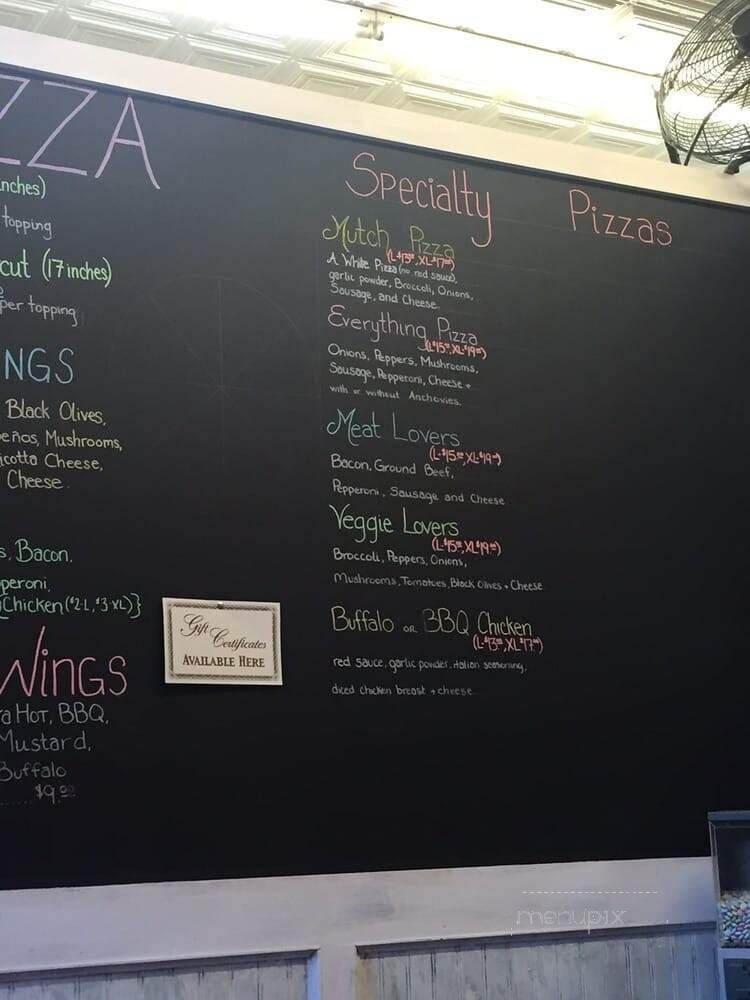 ZZA
inches)
topping
cut (17 inches)
per topping
NGS
Black Olives,
eños, Mushrooms,
icotta Cheese,
Cheese.
s, Bacon,
peroni,
Chicken ($2·L, $3·XL)}
Wings
ra Hot, BBQ,
Mustard,
Buffalo
$9.00
Gift
Certificates
AVAILABLE HERE
Specialty Pizzas
Mutch Pizza
(L-$13.00, XL-$17.00)
A White Pizza (no red sauce),
garlic powder, Broccoli, Onions,
Sausage, and Cheese.
Everything Pizza
(L-$15.00, XL-$19.00)
Onions, Peppers, Mushrooms,
Sausage, Pepperoni, Cheese +
with or without Anchovies.
Meat Lovers
(L-$15.00, XL-$19.00)
Bacon, Ground Beef,
Pepperoni, Sausage and Cheese
Veggie Lovers
(L-$15.00, XL-$19.00)
Broccoli, Peppers, Onions,
Mushrooms, Tomatoes, Black Olives + Cheese
Buffalo or BBQ Chicken
(L-$13.00, XL-$17.00)
red sauce, garlic powder, italian seasoning,
diced chicken breast + cheese.
menupix